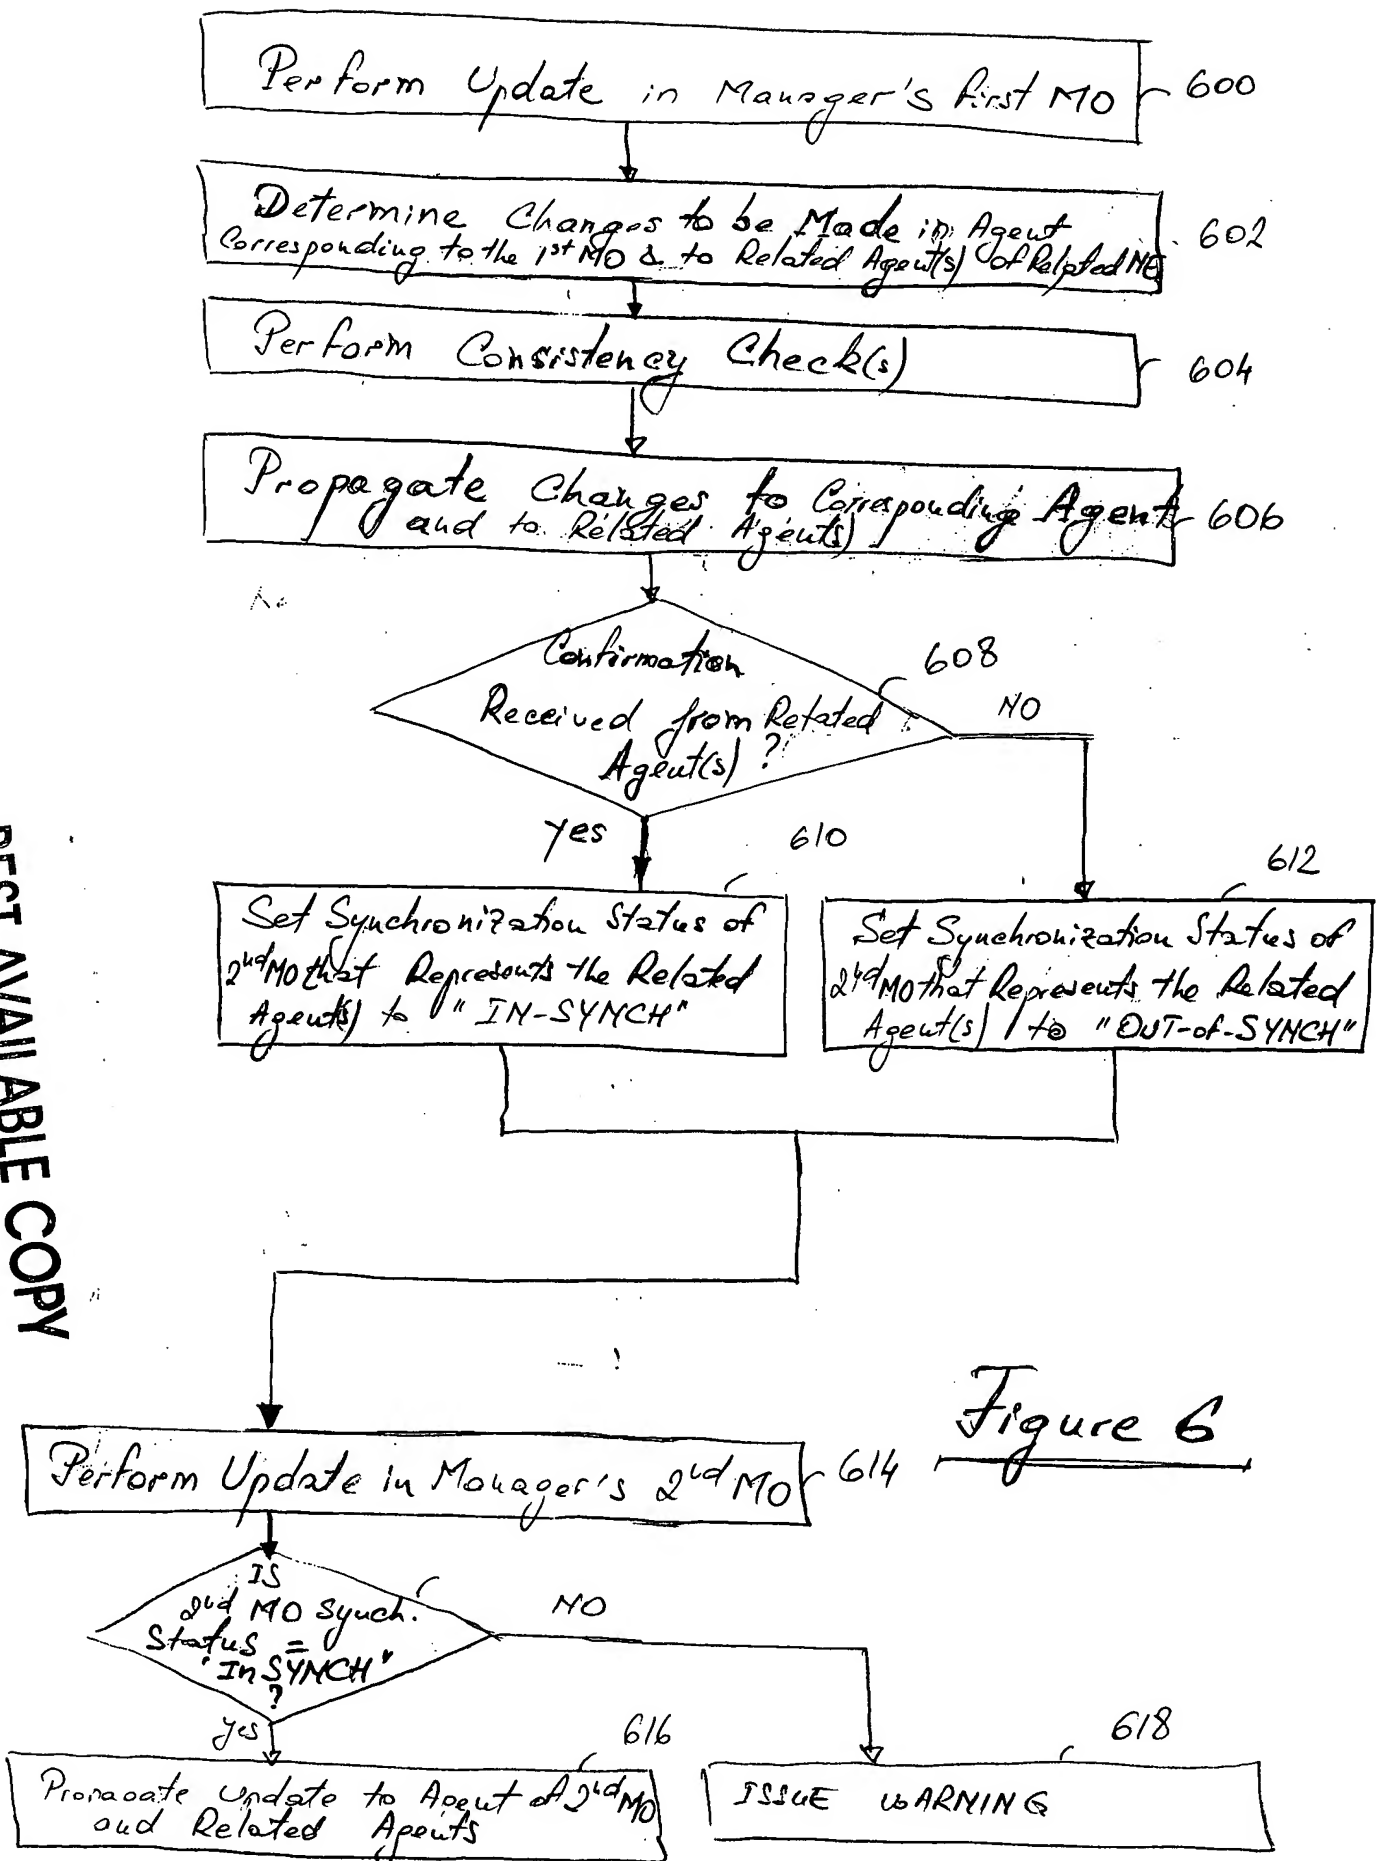 Perform Update in Manager's first MO
600
Determine Changes to be Made in Agent
Corresponding to the 1st MO & to Related Agent(s) of Related NE
602
Perform Consistency Check(s)
604
Propagate Changes to Corresponding Agent
and to Related Agent(s)
606
Confirmation
Received from Related
Agent(s) ?
608
NO
yes
610
612
Set Synchronization Status of
2nd MO that Represents the Related
Agent(s) to "IN-SYNCH"
Set Synchronization Status of
2nd MO that Represents the Related
Agent(s) to "OUT-of-SYNCH"
BEST AVAILABLE COPY
Figure 6
Perform Update in Manager's 2nd MO
614
IS
2nd MO Synch.
Status =
"In SYNCH"
?
NO
yes
616
618
Propagate update to Agent of 2nd MO
and Related Agents
ISSUE WARNING